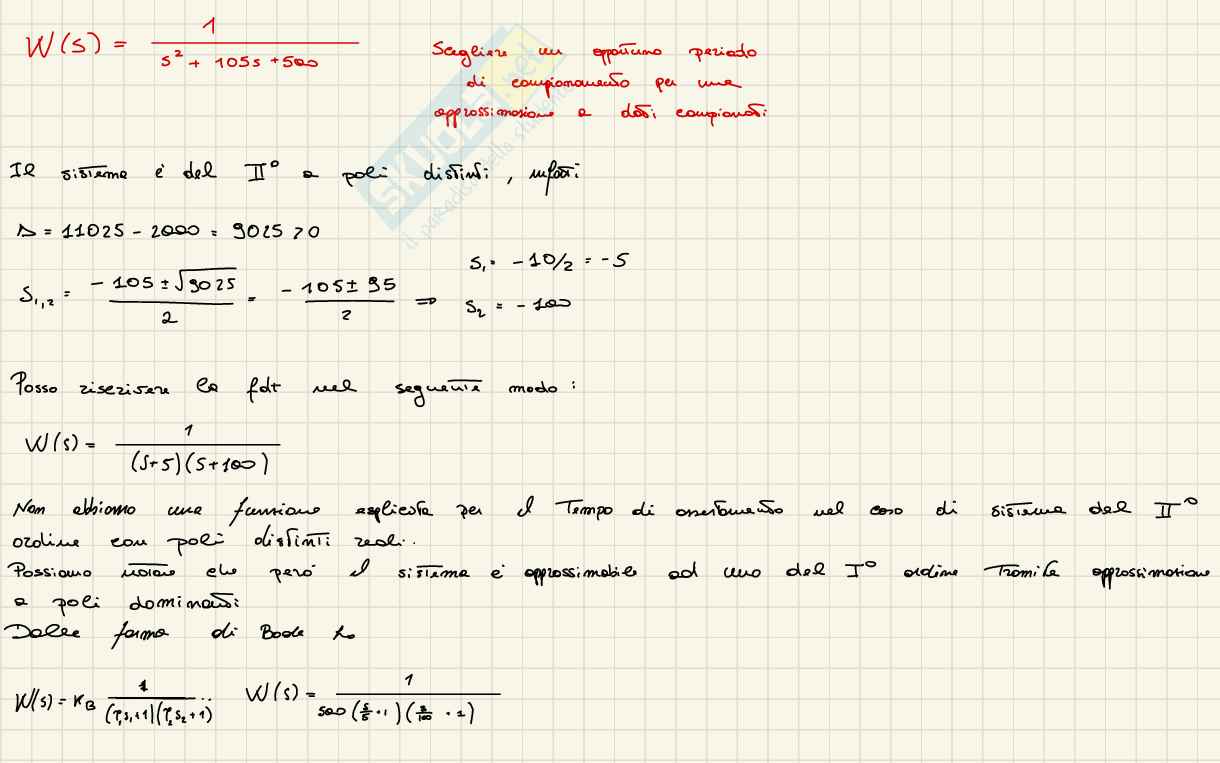 W(s) = 1 / (s² + 105s + 500)
Scegliere un opportuno periodo
di campionamento per una
approssimazione a dati campionati
SKUOLA.net
il paradiso dello studente
Il sistema è del II° a poli distinti, infatti
Δ = 11025 - 2000 = 9025 > 0
S₁,₂ = (-105 ± √9025) / 2 = (-105 ± 95) / 2 ⇒ S₁ = -10/2 = -5
S₂ = -100
Posso riscrivere la fdt nel seguente modo:
W(s) = 1 / ((s+5)(s+100))
Non abbiamo una funzione esplicita per il Tempo di assestamento nel caso di sistema del II°
ordine con poli distinti reali.
Possiamo notare che però il sistema è approssimabile ad uno del I° ordine Tramite approssimazione
a poli dominanti
Dalla forma di Bode ho
W(s) = K_B 1 / ((τ₁s₁+1)(τ₂s₂+1)) .. W(s) = 1 / (500 (s/5 + 1)(s/100 + 1))